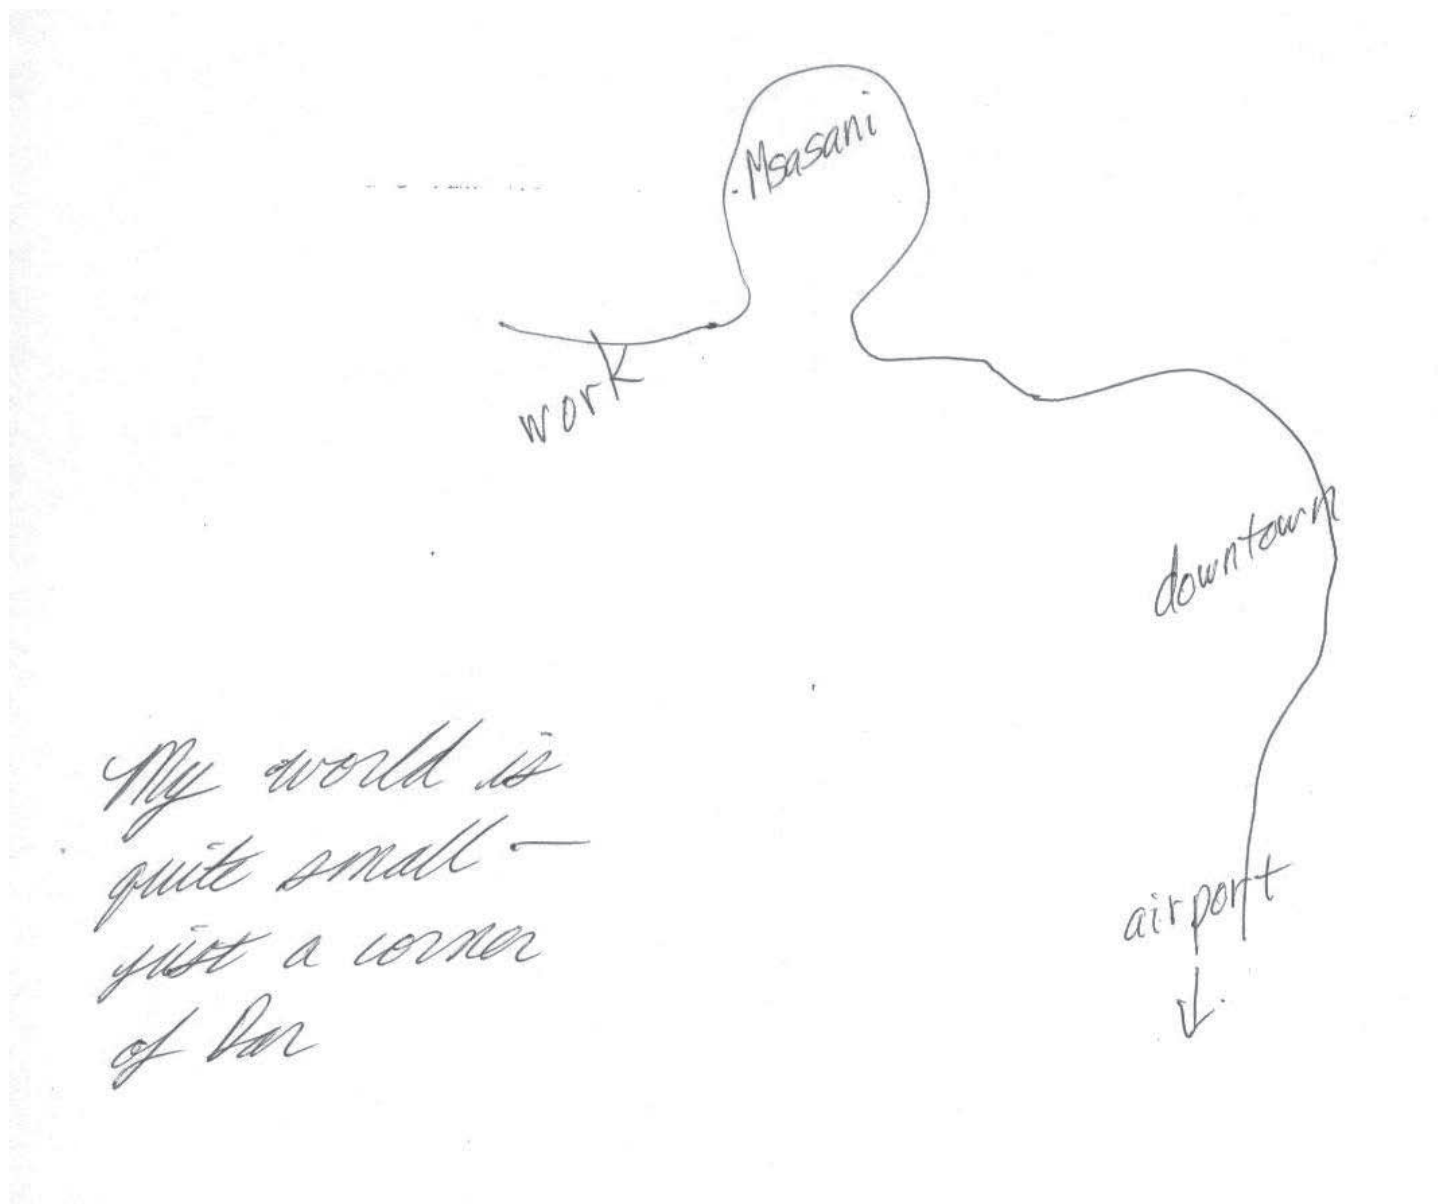 Msasani
work
downtown
airport
My world is
quite small —
just a corner
of Dar